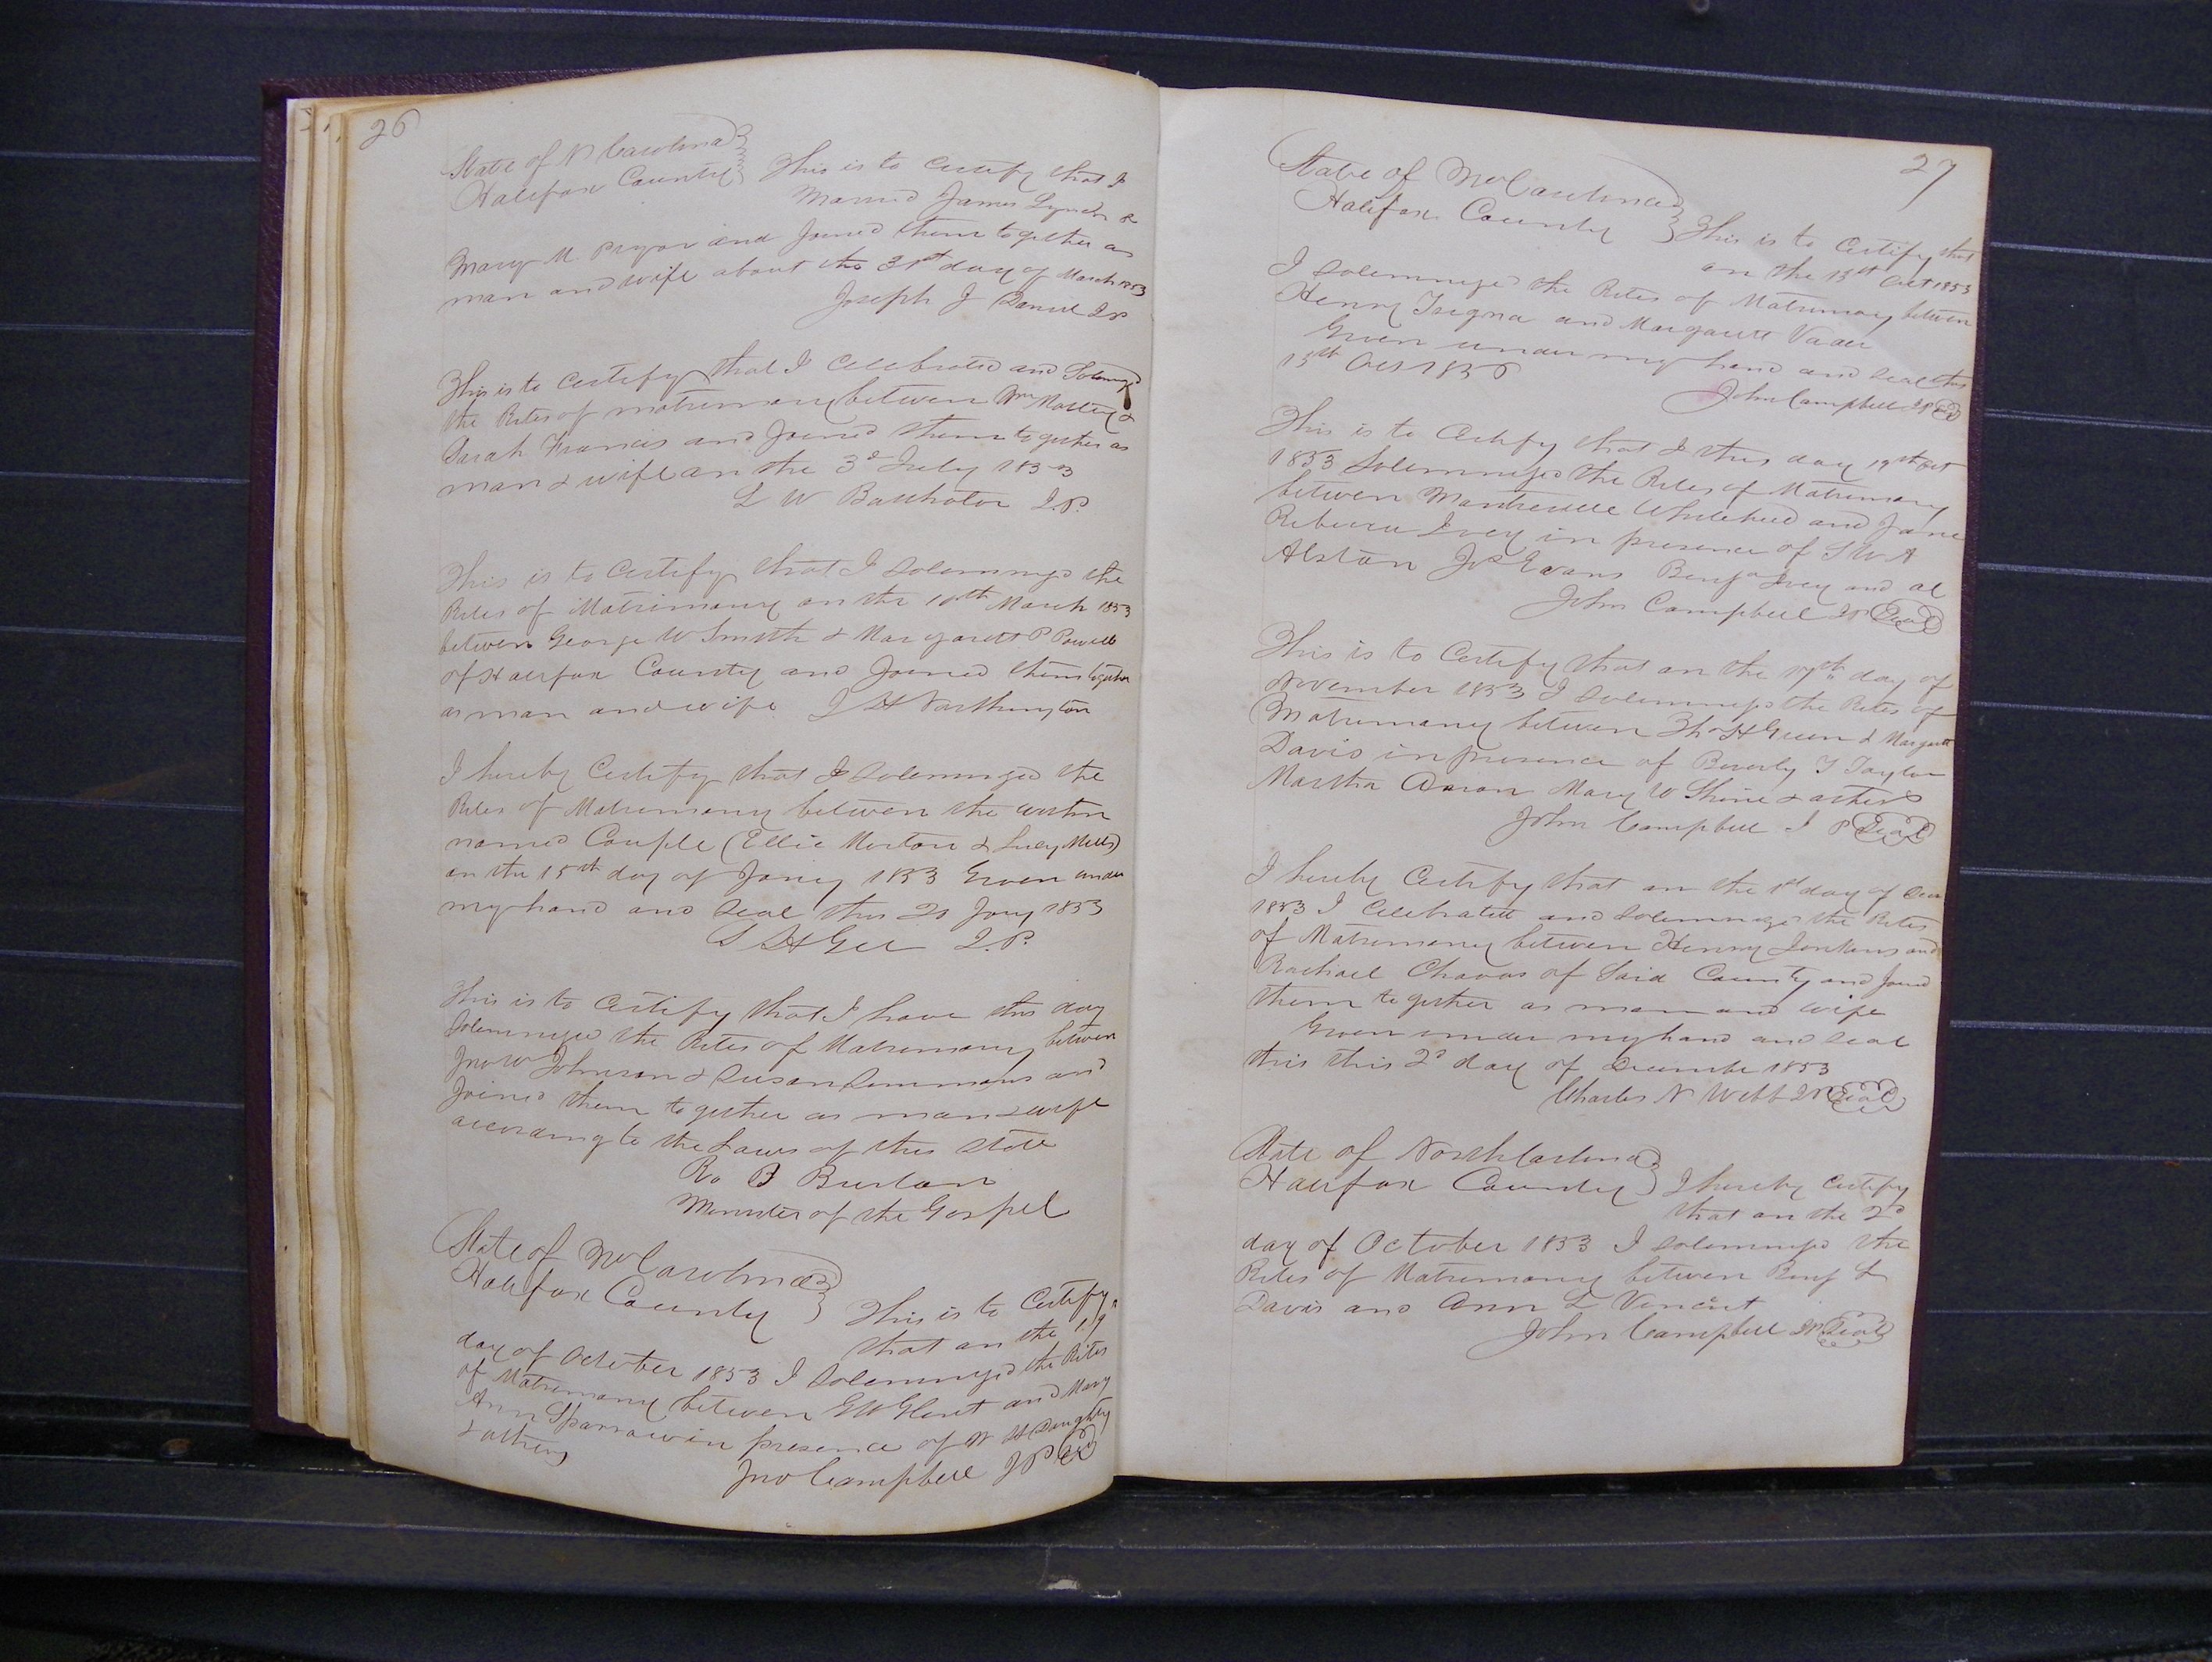 26
State of N Carolina
Halifax County This is to Certify that I
Married James Lynch &
Mary M Pryor and Joined them together as
man and wife about the 31st day of March 1853
Joseph J Daniel JP
This is to Certify that I Celebrated and Solemnized
the Rites of matrimony between Wm &
Sarah Francis and Joined them together as
man & wife on the 3d July 1853
L W Batchelor J.P.
This is to Certify that I Solemnized the
Rites of Matrimony on the 10th March 1853
between George W Smith & Margarett P Powell
of Halifax County and Joined them together
as man and wife
I hereby Certify that I Solemnized the
Rites of Matrimony between the within
named Couple (Ellic Morton & Lucy Mills)
on the 15th day of Jany 1853 Given under
my hand and Seal this 20 Jany 1853
S H Gee J.P.
This is to Certify that I have this day
Solemnized the Rites of Matrimony between
Jno W Johnson & Susan Simmons and
Joined them together as man & wife
according to the Laws of this State
Ro O Burton
Minister of the Gospel
State of No Carolina
Halifax County This is to Certify
that on the 19
day of October 1853 I Solemnized the Rites
of Matrimony between G W and Mary
Ann Sparrow in presence of W H Doughty
& others
Jno Campbell JP Seal
27
State of No Carolina
Halifax County This is to Certify that
on the 15th Oct 1853
I Solemnized the Rites of Matrimony between
Henry and Margarett
Given under my hand and Seal this
15th Oct 1856
John Campbell JP Seal
This is to Certify that I this day 19th Oct
1853 Solemnized the Rites of Matrimony
between Whitehead and Jane
Rebecca Ivey in presence of S W A
Alston Jos Evans Benja Ivey and al
John Campbell JP Seal
This is to Certify that on the 17th day of
November 1853 I Solemnized the Rites of
Matrimony between Tho H Green & Margarett
Davis in presence of Beverly T Taylor
Martha Aaron Mary W Shine & others
John Campbell J P Seal
I hereby Certify that on the 1st day of Decr
1853 I Celebratett and Solemnized the Rites
of Matrimony between Henry Jenkins and
Rachael Chavas of Said County and Joined
them together as man and wife
Given under my hand and Seal
this this 2d day of December 1853
Charles N Webb JP Seal
State of North Carolina
Halifax County I hereby Certify
that on the 2d
day of October 1853 I Solemnized the
Rites of Matrimony between Benj L
Davis and Ann L Vincent
John Campbell JP Seal